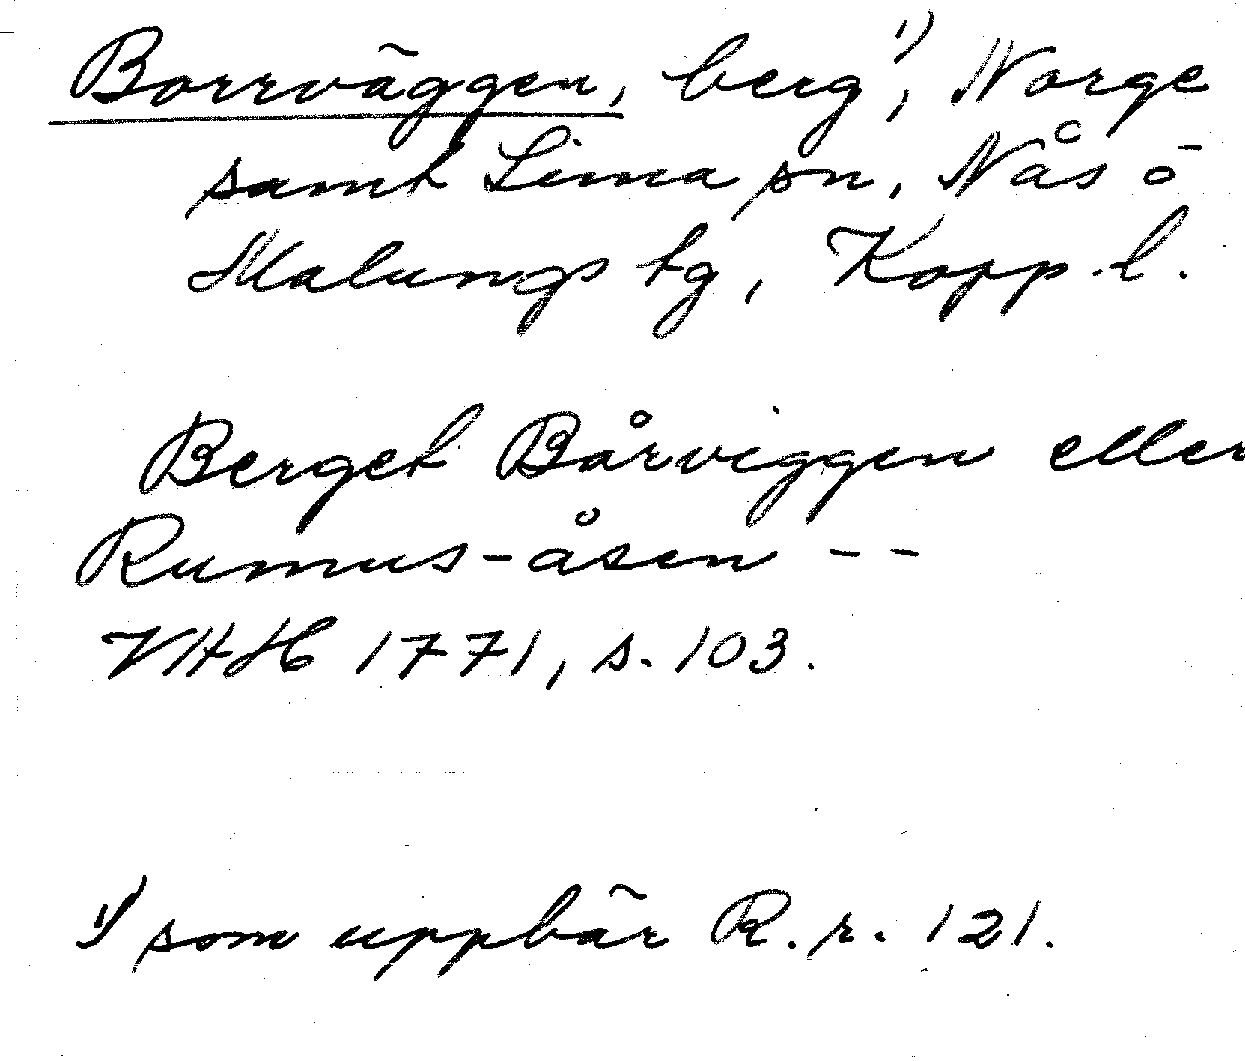 Borrväggen, berg¹⁾, Norge
samt Lima sn, Nås o
Malungs tg, Kopp.l.
Berget Bårviggen eller
Rumus-åsen - -
VHH 1771, s. 103.
1) som uppbär R.r. 121.